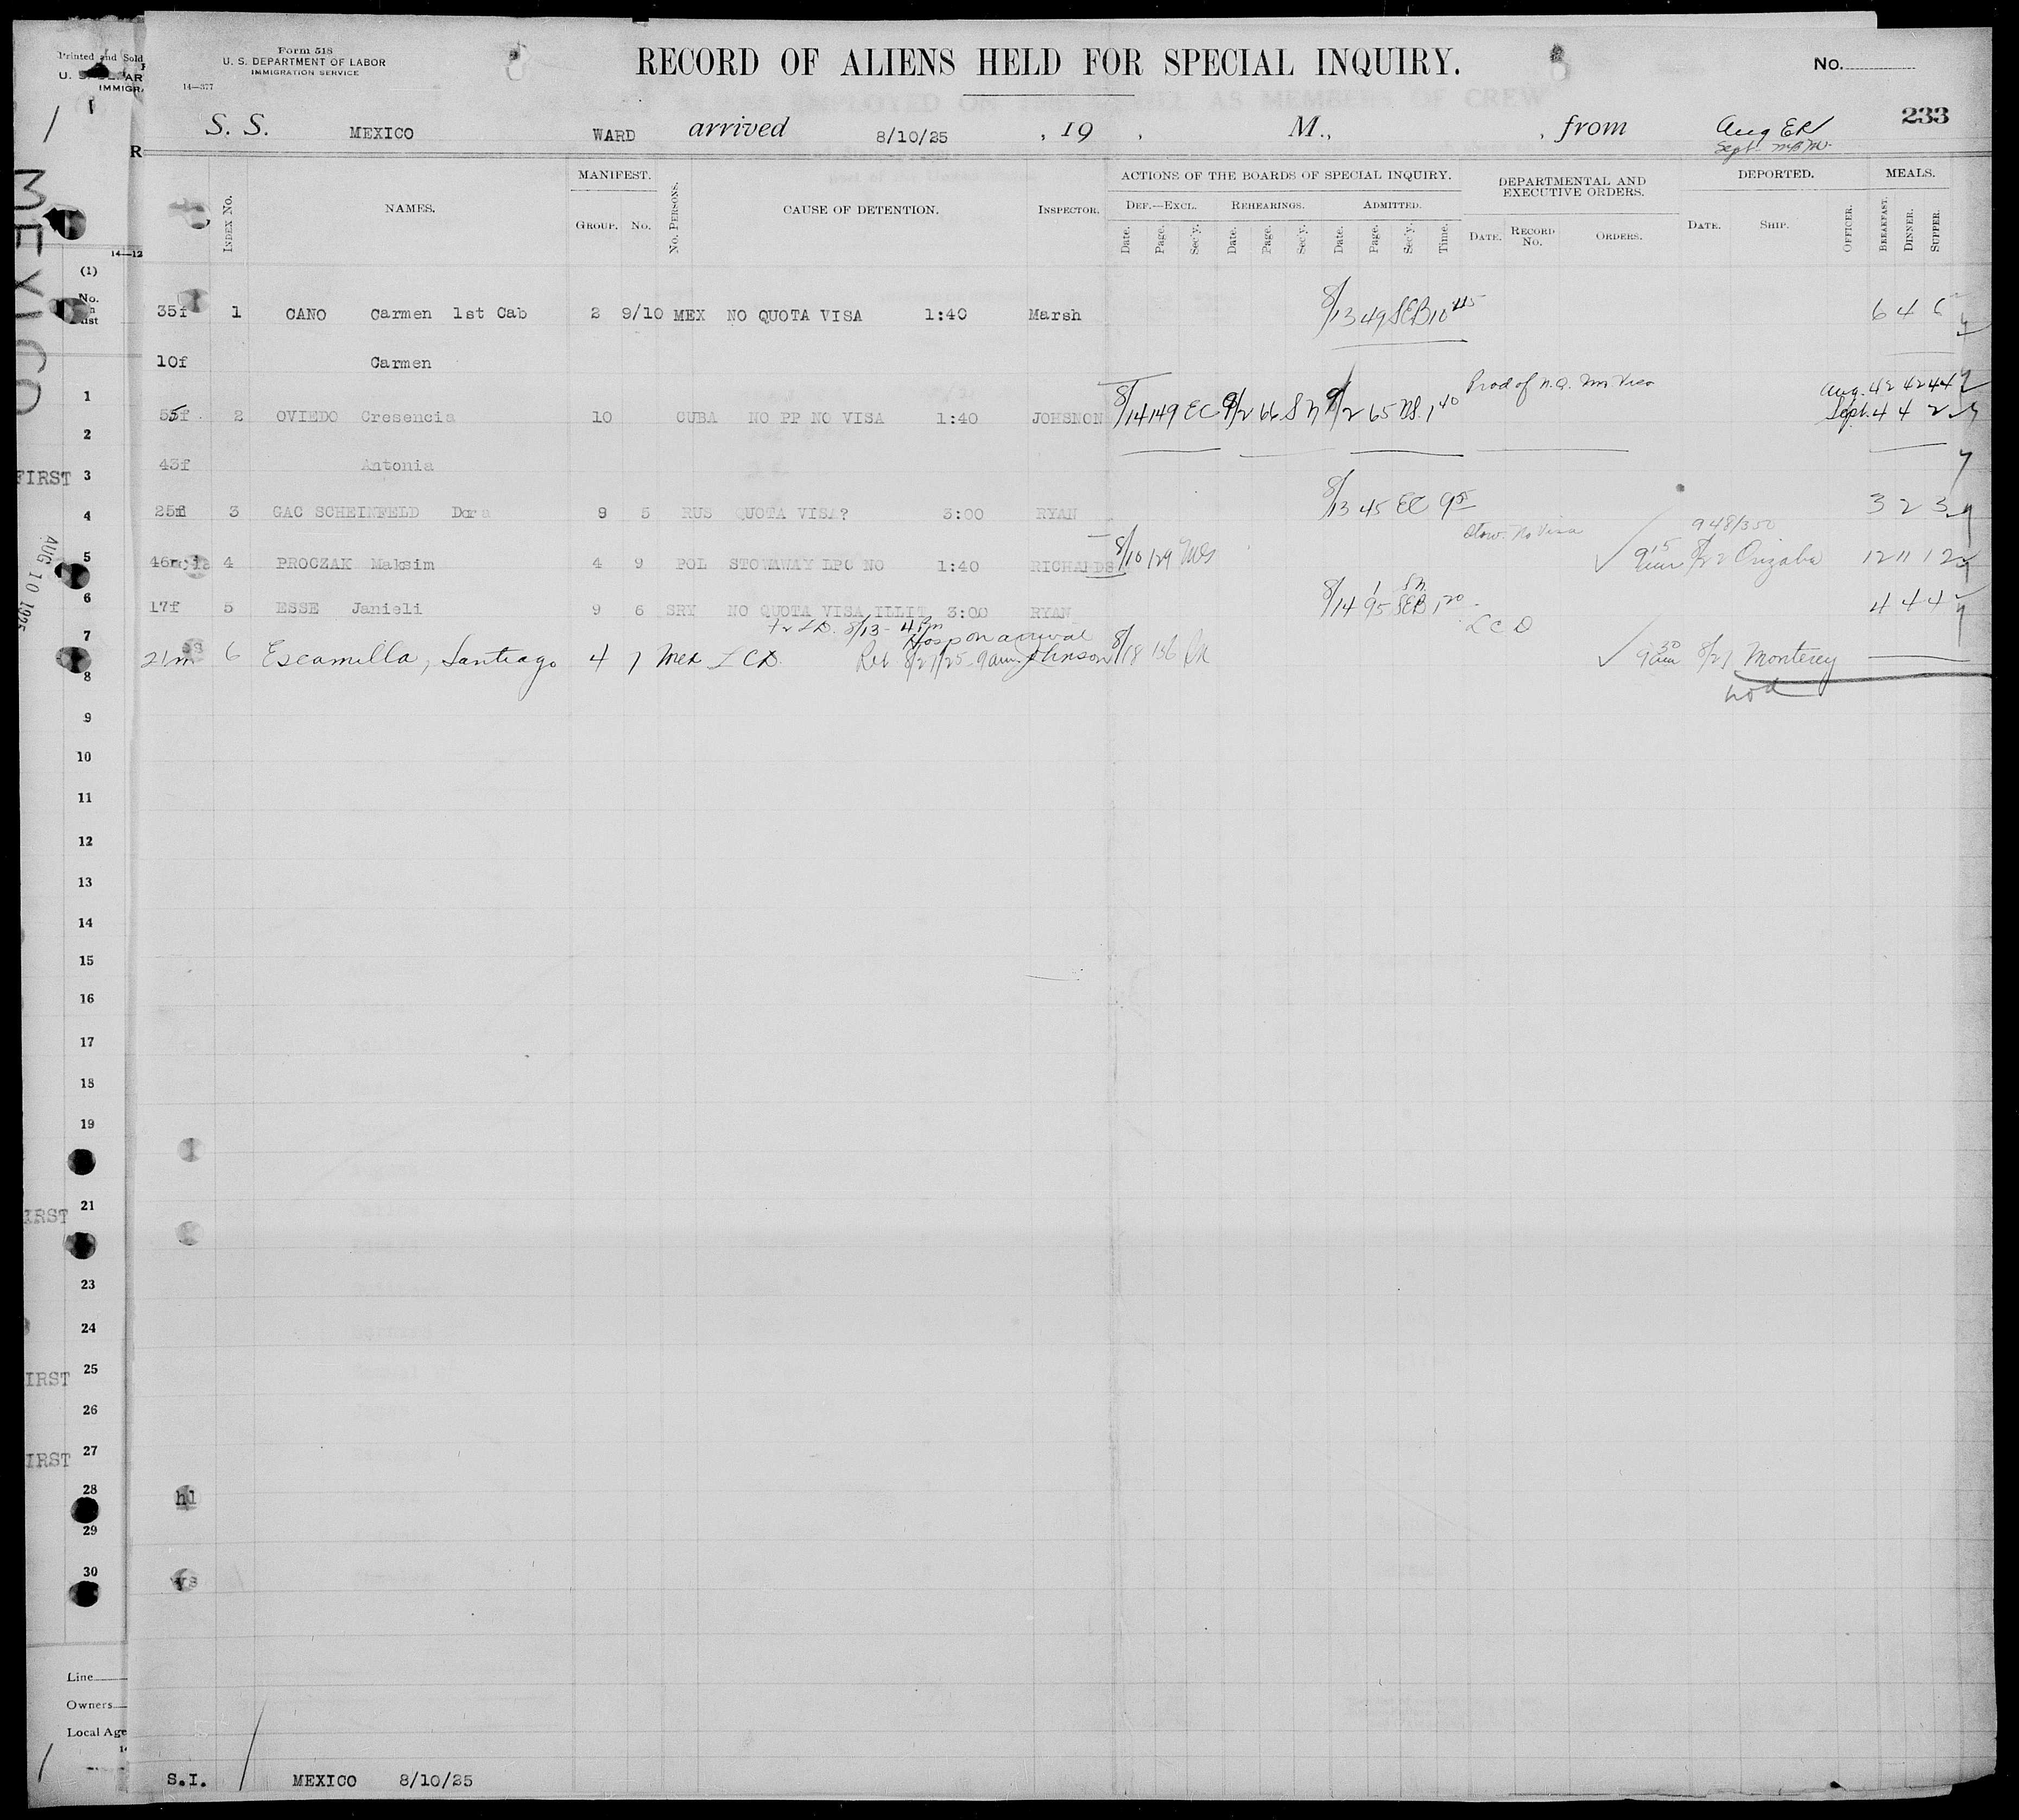 Form 518
U. S. DEPARTMENT OF LABOR
IMMIGRATION SERVICE
14—377
RECORD OF ALIENS HELD FOR SPECIAL INQUIRY.
No.
233
S. S. MEXICO WARD arrived 8/10/25 , 19 , M., , from
Aug ER
Sept. M.B.M.
INDEX No. NAMES. MANIFEST. GROUP. No. No. PERSONS. CAUSE OF DETENTION. INSPECTOR.
ACTIONS OF THE BOARDS OF SPECIAL INQUIRY.
DEF.—EXCL. REHEARINGS. ADMITTED.
Date. Page. Sec'y. Date. Page. Sec'y. Date. Page. Sec'y. Time.
DEPARTMENTAL AND EXECUTIVE ORDERS.
DATE. RECORD No. ORDERS.
DEPORTED.
DATE. SHIP. OFFICER.
MEALS.
BREAKFAST. DINNER. SUPPER.
35f 1 CANO Carmen 1st Cab 2 9/10 MEX NO QUOTA VISA 1:40 Marsh 8/13 49 SEB 10 45 6 4 6
10f Carmen
55f 2 OVIEDO Cresencia 10 CUBA NO PP NO VISA 1:40 JOHSNON 8/14 149 EC 9/2 66 SN 9/2 65 1 40 Aug. 42 42 44
Sept. 4 4 2
43f Antonia
25f 3 GAC SCHEINFELD Dora 9 5 RUS QUOTA VISA? 3:00 RYAN 8/13 45 EC 3 2 3
Stow. No Visa 948/350
46m 4 PROCZAK Maksim 4 9 POL STOWAWAY LPC NO 1:40 RICHARDS 8/10 129 9 15 8/22 Orizaba 12 11 12
17f 5 ESSE Janieli 9 6 SRY NO QUOTA VISA ILLIT 3:00 RYAN 8/14 95 SEB 1 20 4 4 4
8/13 - 4 Pm
Hosp on arrival
L C D
21m 6 Escamilla, Santiago 4 1 Mex L C D. 8/21/25 9 am Johnson 8/18 156 9 30 am 8/21 Monterey
S.I. MEXICO 8/10/25
Printed and Sold
MEXICO
AUG 10 1925
(1)
No.
1
2
FIRST 3
4
5
6
7
8
9
10
11
12
13
14
15
16
17
18
19
21
23
24
25
26
27
28
29
30
Line
Owners
Local Age